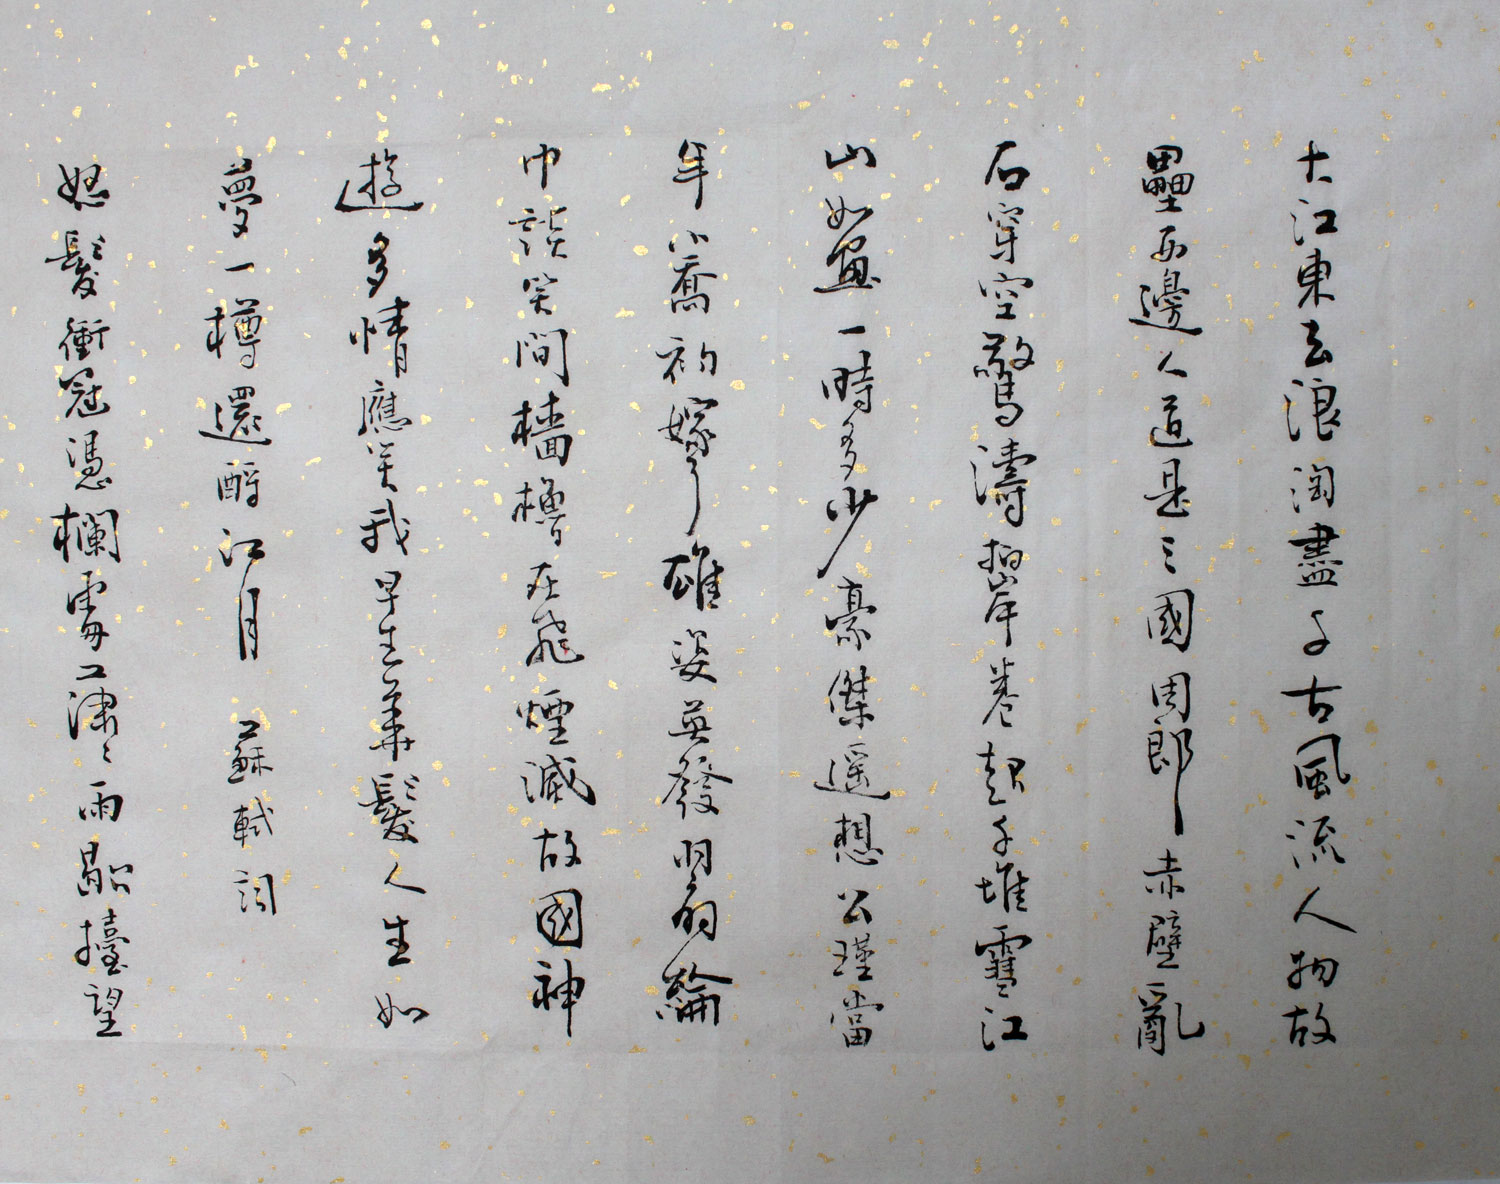 大江東去浪淘盡千古風流人物故
壘西邊人道是三國周郎赤壁亂
石穿空驚濤拍岸卷起千堆雪江
山如畫一時多少豪傑遥想公瑾當
年小喬初嫁了雄姿英發羽扇綸
巾談笑間檣櫓在飛煙滅故國神
遊多情應笑我早生華髮人生如
夢一樽還酹江月 蘇軾詞
怒髮衝冠憑欄處瀟〻雨歇擡望